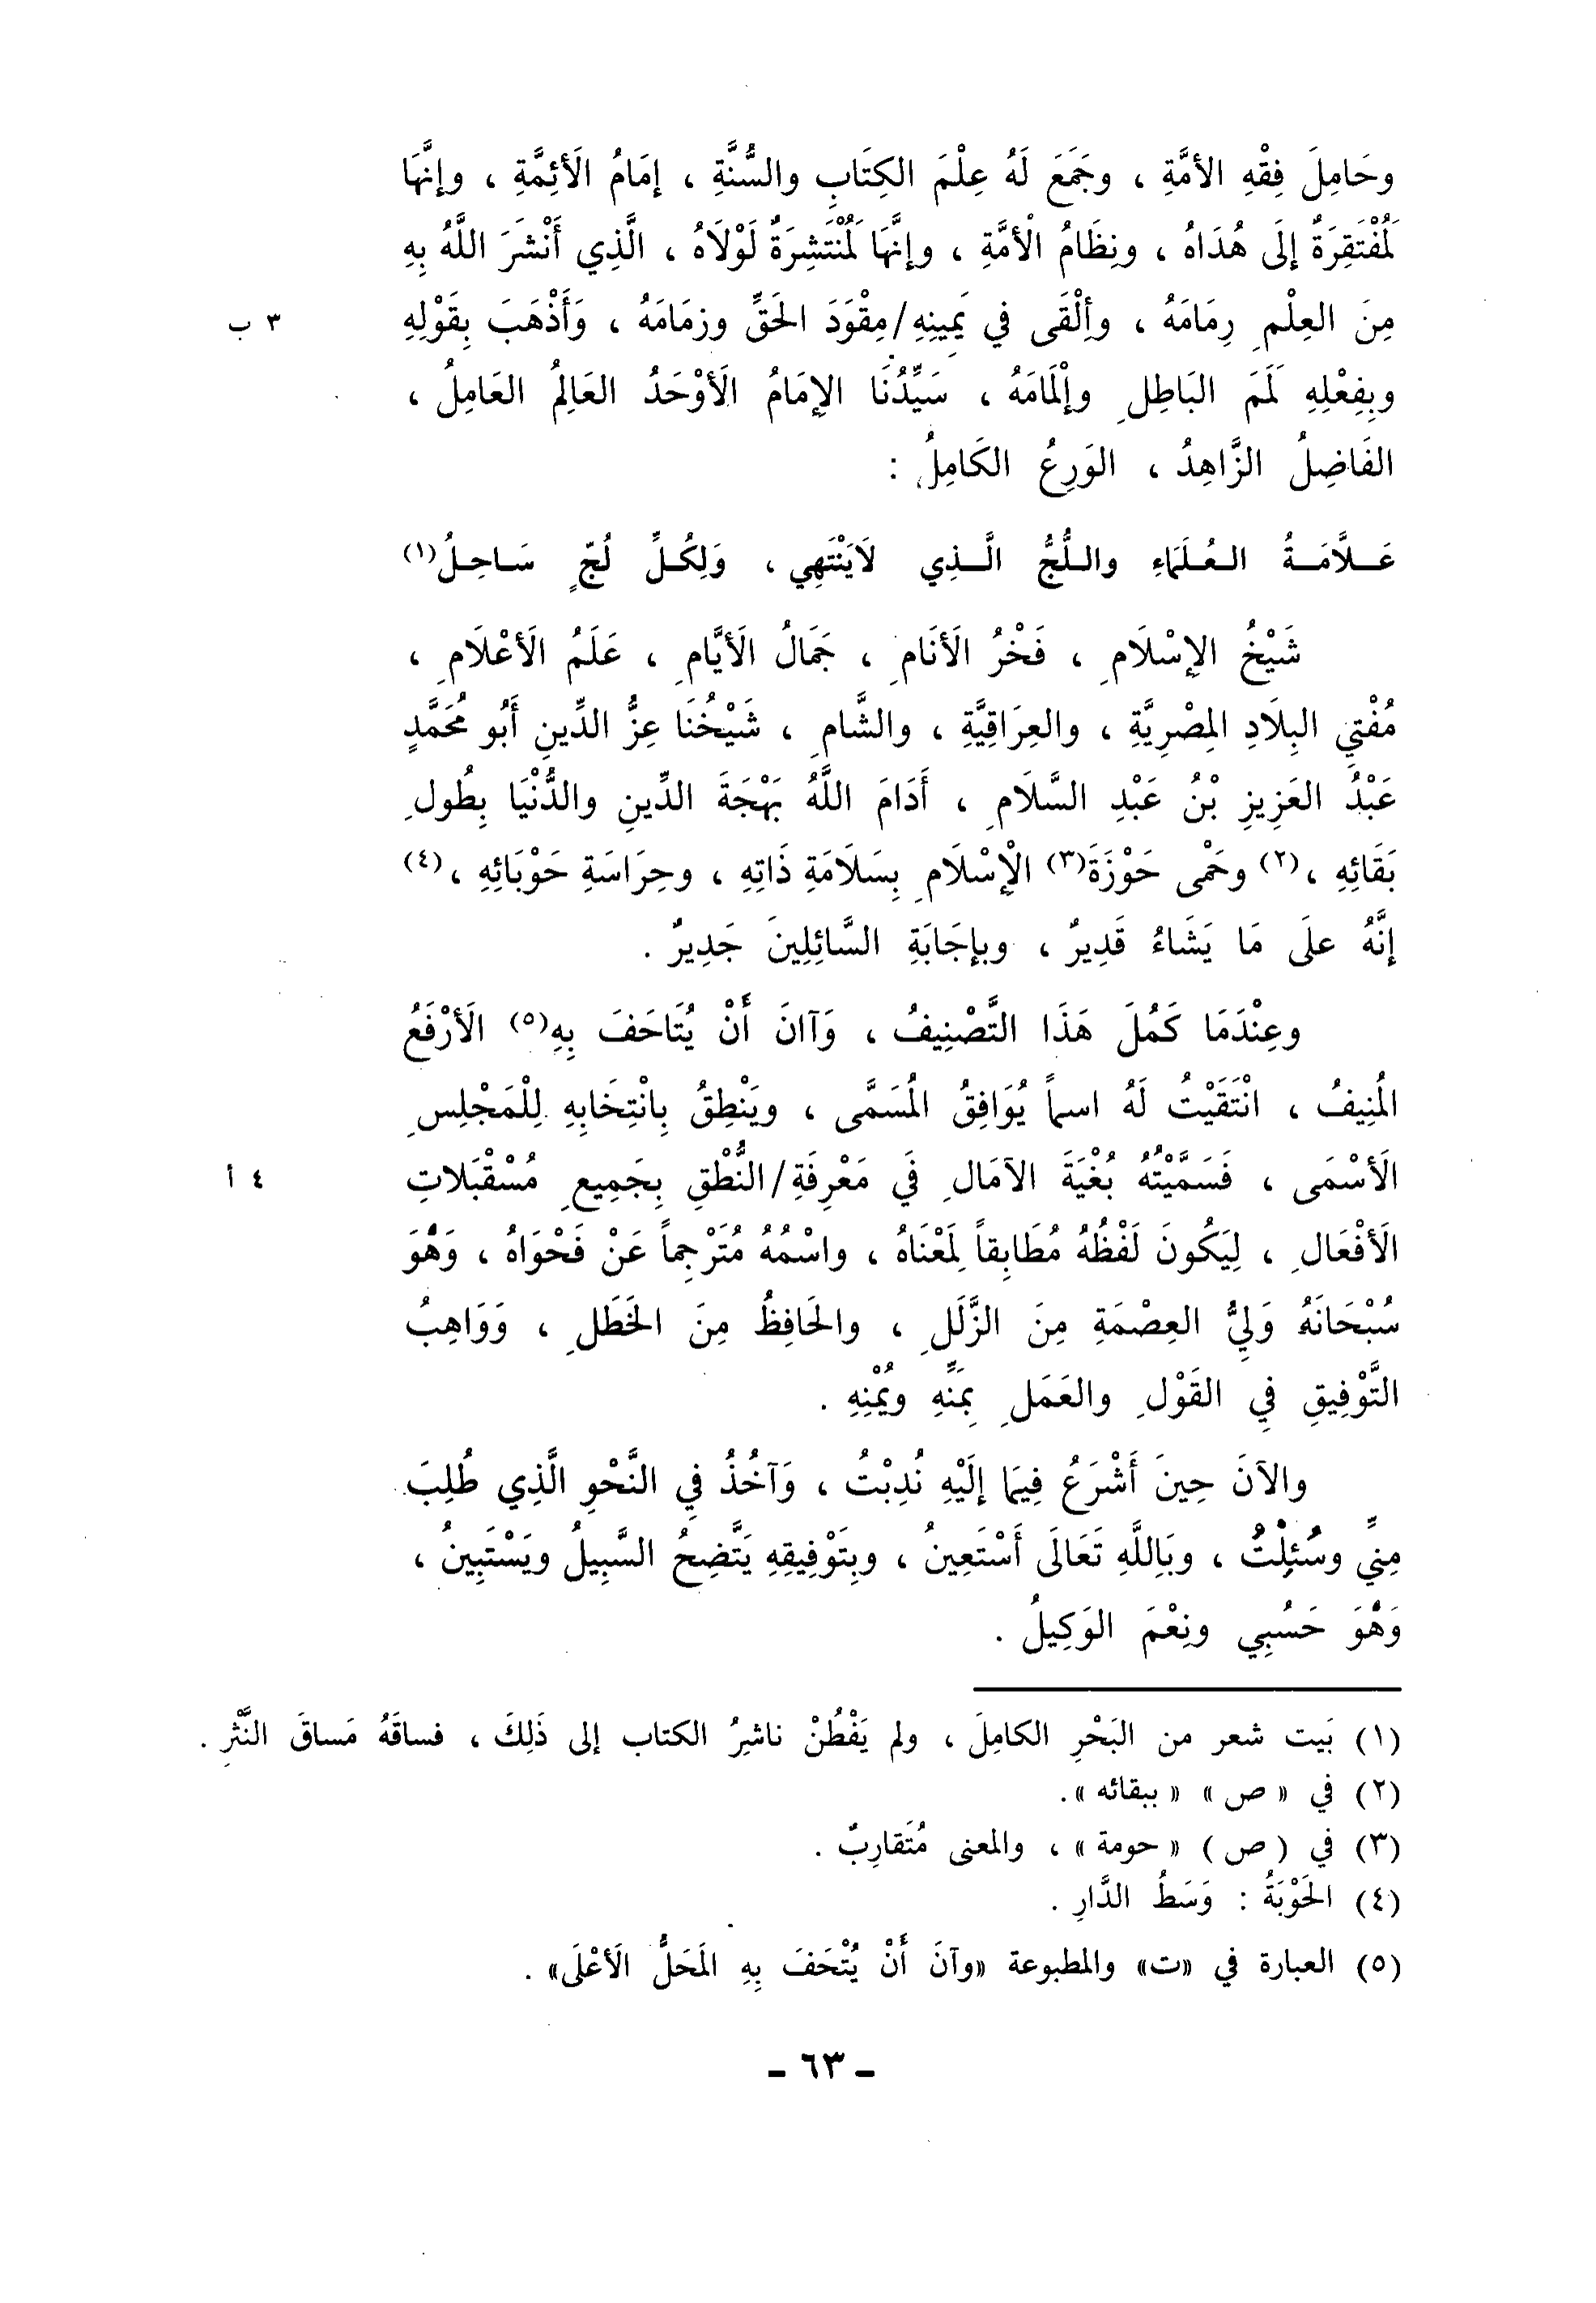 وحَامِلَ فِقْهِ الأمَّةِ ، وجَمَعَ لَهُ عِلْمَ الكِتَابِ والسُّنَّةِ ، إمَامُ الَأئِمَّةِ ، وإنَّهَا
لَمُفْتَقِرَةٌ إلَى هُدَاهُ ، ونِظَامُ الْأمَّةِ ، وإنَّهَا لَمُنْتَشِرَةٌ لَوْلَاهُ ، الَّذِي أَنْشرَ اللَّهُ بِهِ
مِنَ العِلْمِ رِمَامَهُ ، وأَلْقَى في يَمِينِهِ/مِقْوَدَ الحَقِّ وزمَامَهُ ، وَأَذْهَبَ بِقَوْلِهِ
٣ ب
وبِفِعْلِهِ لَمَمَ البَاطِلِ وإلْمَامَهُ ، سَيِّدُنَا الإمَامُ الَأوْحَدُ العَالِمُ العَامِلُ ،
الفَاضِلُ الزَّاهِدُ ، الوَرِعُ الكَامِلُ :
عَــلَّامَــةُ الـعُـلَمَاءِ والـلُّجُّ الَّــذِي لاَيَنْتَهِي ، وَلِكُـلِّ لُجٍّ سَـاحِـلُ(١)
شَيْخُ الإسْلَامِ ، فَخْرُ الَأنَامِ ، جَمَالُ الَأيَّامِ ، عَلَمُ الَأعْلَامِ ،
مُفْتِي البِلَادِ المِصْرِيَّةِ ، والعِرَاقِيَّةِ ، والشَّامِ ، شَيْخُنَا عِزُّ الدِّينِ أَبُو مُحَمَّدٍ
عَبْدُ العَزِيزِ بْنُ عَبْدِ السَّلَامِ ، أَدَامَ اللَّهُ بَهْجَةَ الدِّينِ والدُّنْيَا بِطُولِ
بَقَائِهِ ،(٢) وحَمْى حَوْزَةَ(٣) الْإسْلَامِ بِسَلَامَةِ ذَاتِهِ ، وحِرَاسَةِ حَوْبَائِهِ ،(٤)
إنَّهُ علَى مَا يَشَاءُ قَدِيرٌ ، وبإجَابَةِ السَّائِلِينَ جَدِيرٌ .
وعِنْدَمَا كَمُلَ هَذَا التَّصْنِيفُ ، وَآانَ أَنْ يُتَاحَفَ بِهِ(٥) الَأرْفَعُ
المُنِيفُ ، انْتَقَيْتُ لَهُ اسماً يُوَافِقُ المُسَمَّى ، ويَنْطِقُ بِانْتِخَابِهِ لِلْمَجْلِسِ
الَأسْمَى ، فَسَمَّيْتُهُ بُغْيَةَ الآمَالِ فَي مَعْرِفَةِ/النُّطْقِ بِجَمِيعِ مُسْقْبَلاتِ
٤ أ
الَأفْعَالِ ، لِيَكُونَ لَفْظُهُ مُطَابِقاً لِمَعْنَاهُ ، واسْمُهُ مُتَرْجِماً عَنْ فَحْوَاهُ ، وَهُوَ
سُبْحَانَهُ وَلِيُّ العِصْمَةِ مِنَ الزَّلَلِ ، والحَافِظُ مِنَ الخَطَلِ ، وَوَاهِبُ
التَّوْفِيقِ فِي القَوْلِ والعَمَلِ بِمَنِّهِ ويُمْنِهِ .
والآنَ حِينَ أَشْرَعُ فِيمَا إلَيْهِ نُدِبْتُ ، وَآخُذُ فِي النَّحْوِ الَّذِي طُلِبَ
مِنِّي وسُئِلْتُ ، وبَاللَّهِ تَعَالَى أَسْتَعِينُ ، وبِتَوْفِيقِهِ يَتَّضِحُ السَّبِيلُ ويَسْتَبِينُ ،
وَهُوَ حَسْبِي ونِعْمَ الوَكِيلُ .
(١) بَيت شعر من البَحْرِ الكامِلَ ، ولم يَفْطُنْ ناشِرُ الكتاب إلى ذَلِكَ ، فساقَهُ مَساقَ النَّثْرِ .
(٢) في « ص » « ببقائه ».
(٣) في ( ص ) « حومة » ، والمعنى مُتَقارِبٌ .
(٤) الحَوْبَةُ : وَسَطُ الدَّارِ .
(٥) العبارة في «ت» والمطبوعة «وآنَ أَنْ يُتْحَفَ بِهِ المَحَلُّ الَأعْلَى» .
ـ ٦٣ ـ